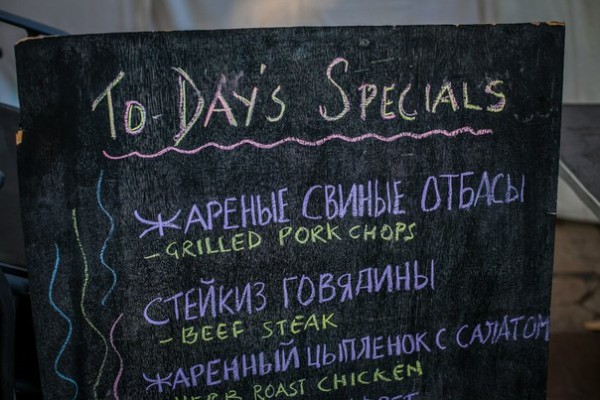 To-Day's Specials
ЖАРЕНЫЕ СВИНЫЕ ОТБАСЫ
- GRILLED PORK CHOPS
СТЕЙКИЗ ГОВЯДИНЫ
- BEEF STEAK
ЖАРЕННЫЙ ЦЫПЛЕНОК С САЛАТОМ
HERB ROAST CHICKEN